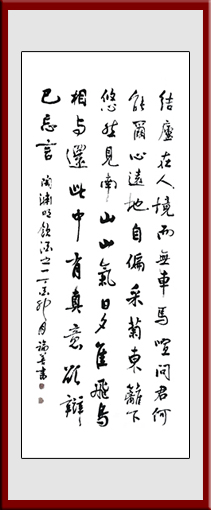 結廬在人境而無車馬喧問君何
能爾心遠地自偏采菊東籬下
悠然見南山山氣日夕佳飛鳥
相与還此中有真意欲辯
已忘言 陶淵明飲酒之一丁亥 月 書